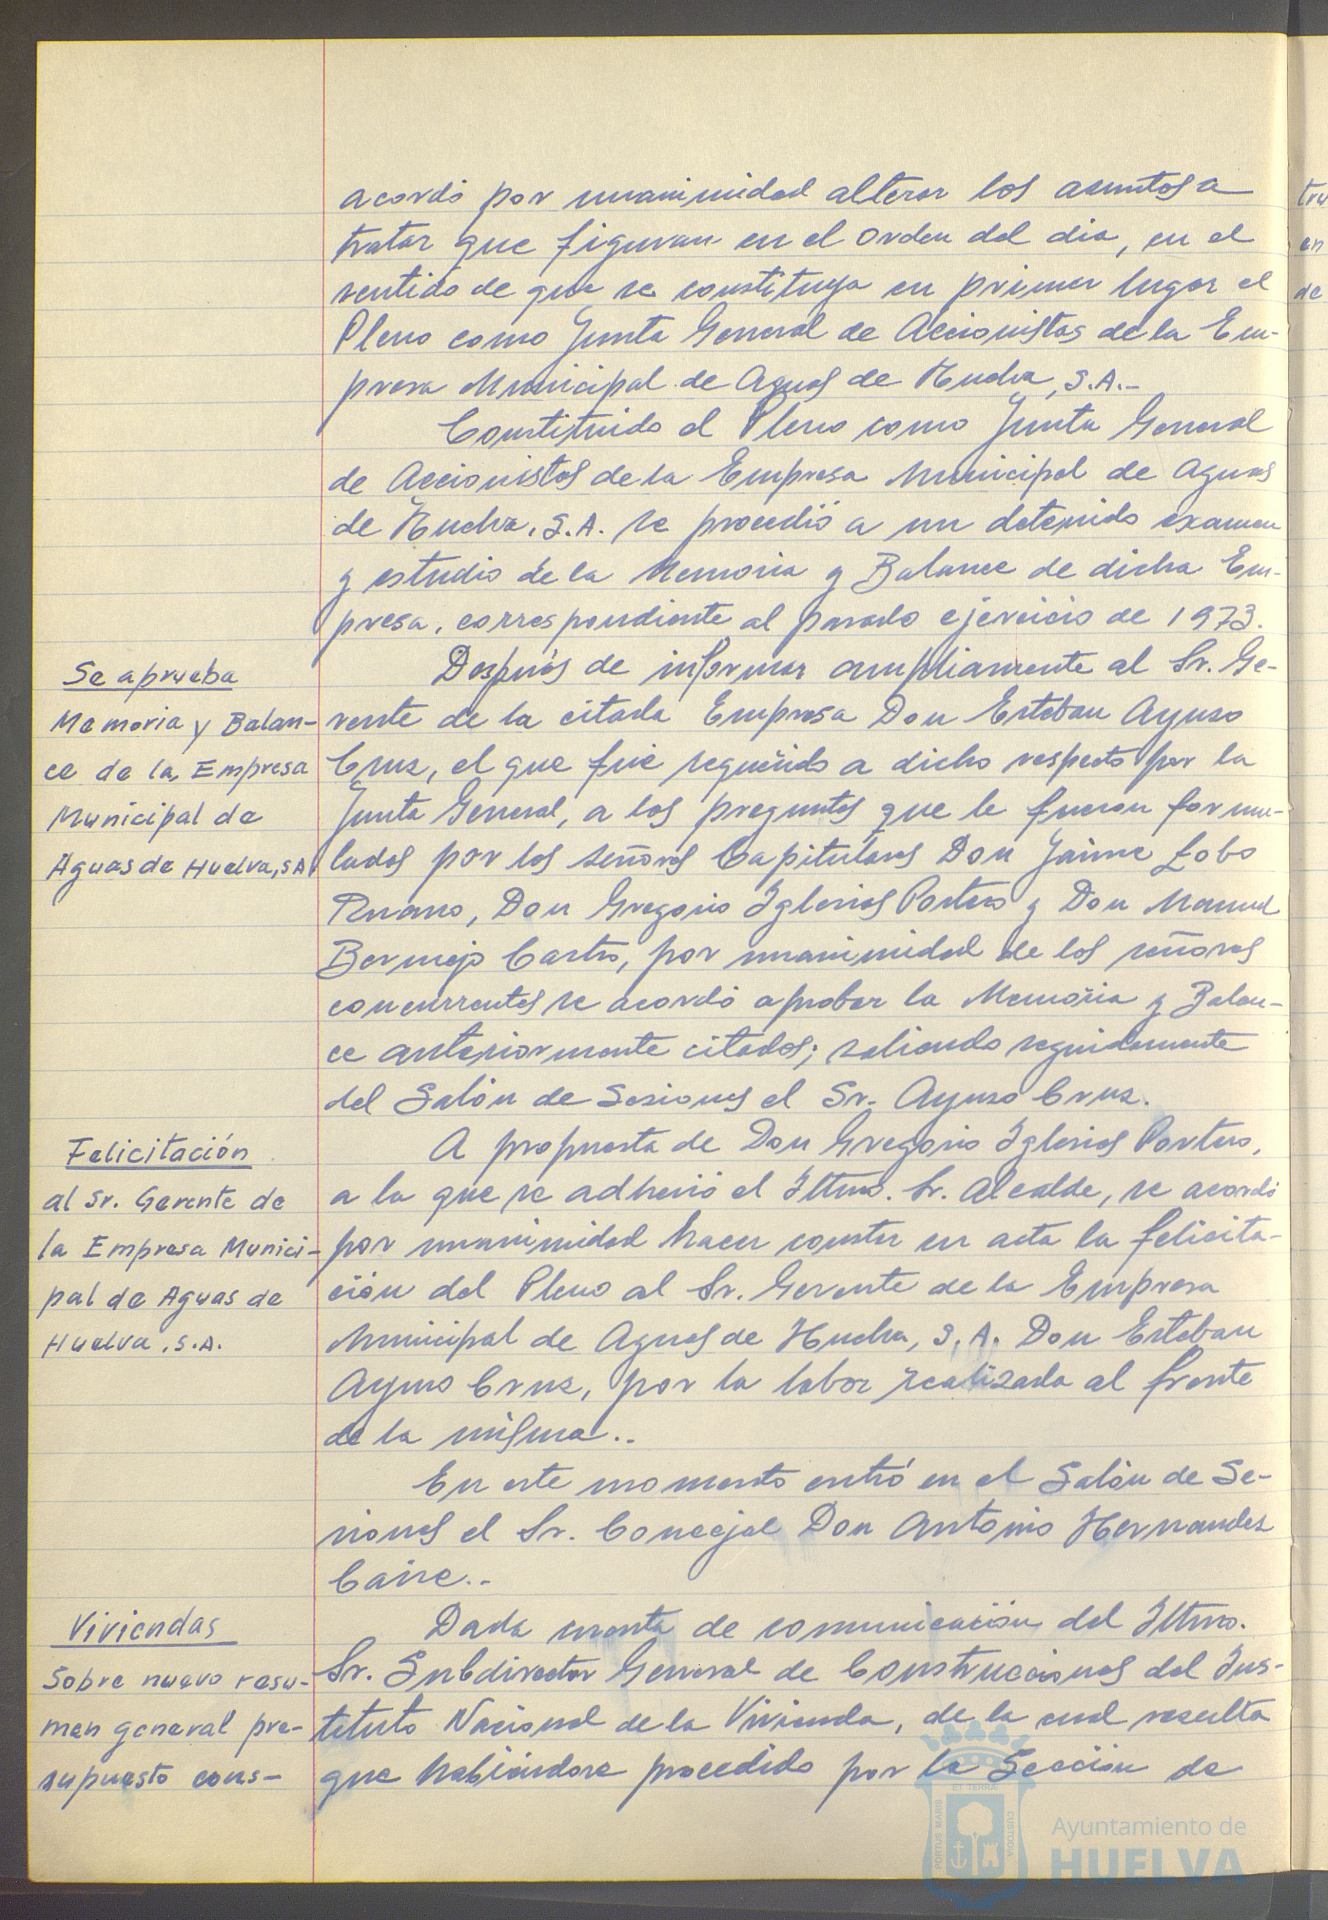 acordó por unanimidad alterar los asuntos a
tratar que figuran en el orden del dia, en el
sentido de que se constituya en primer lugar el
Pleno como Junta General de Accionistas de la Em-
presa Municipal de Aguas de Huelva, S.A.-
Constituido el Pleno como Junta General
de Accionistas de la Empresa Municipal de Aguas
de Huelva, S.A. se procedió a un detenido examen
y estudio de la Memoria y Balance de dicha Em-
presa, correspondiente al pasado ejercicio de 1973.
Se aprueba
Memoria y Balan-
ce de la Empresa
Municipal de
Aguas de Huelva, S.A.
Después de informar ampliamente al Sr. Ge-
rente de la citada Empresa Don Esteban Ayuso
Cruz, el que fue requerido a dicho respecto por la
Junta General, a las preguntas que le fueron formu-
ladas por los señores Capitulares Don Jaime Lobo
Ruano, Don Gregorio Iglesias Portero y Don Manuel
Bermejo Castro, por unanimidad de los señores
concurrentes se acordó aprobar la Memoria y Balan-
ce anteriormente citados; saliendo seguidamente
del Salón de Sesiones el Sr. Ayuso Cruz.
Felicitación
al Sr. Gerente de
la Empresa Munici-
pal de Aguas de
Huelva, S.A.
A propuesta de Don Gregorio Iglesias Portero,
a la que se adhirió el Iltmo. Sr. Alcalde, se acordó
por unanimidad hacer constar en acta la felicita-
ción del Pleno al Sr. Gerente de la Empresa
Municipal de Aguas de Huelva, S.A. Don Esteban
Ayuso Cruz, por la labor realizada al frente
de la misma..
En este momento entró en el Salón de Se-
siones el Sr. Concejal Don Antonio Hernandez
Caire..
Viviendas
Sobre nuevo resu-
men general pre-
supuesto cons-
Dada cuenta de comunicación del Iltmo.
Sr. Subdirector General de Construcciones del Ins-
tituto Nacional de la Vivienda, de la cual resulta
que habiéndose procedido por la Sección de
tru
en
de
PORTUS MARIS
ET TERRA
CUSTODIA
Ayuntamiento de
HUELVA